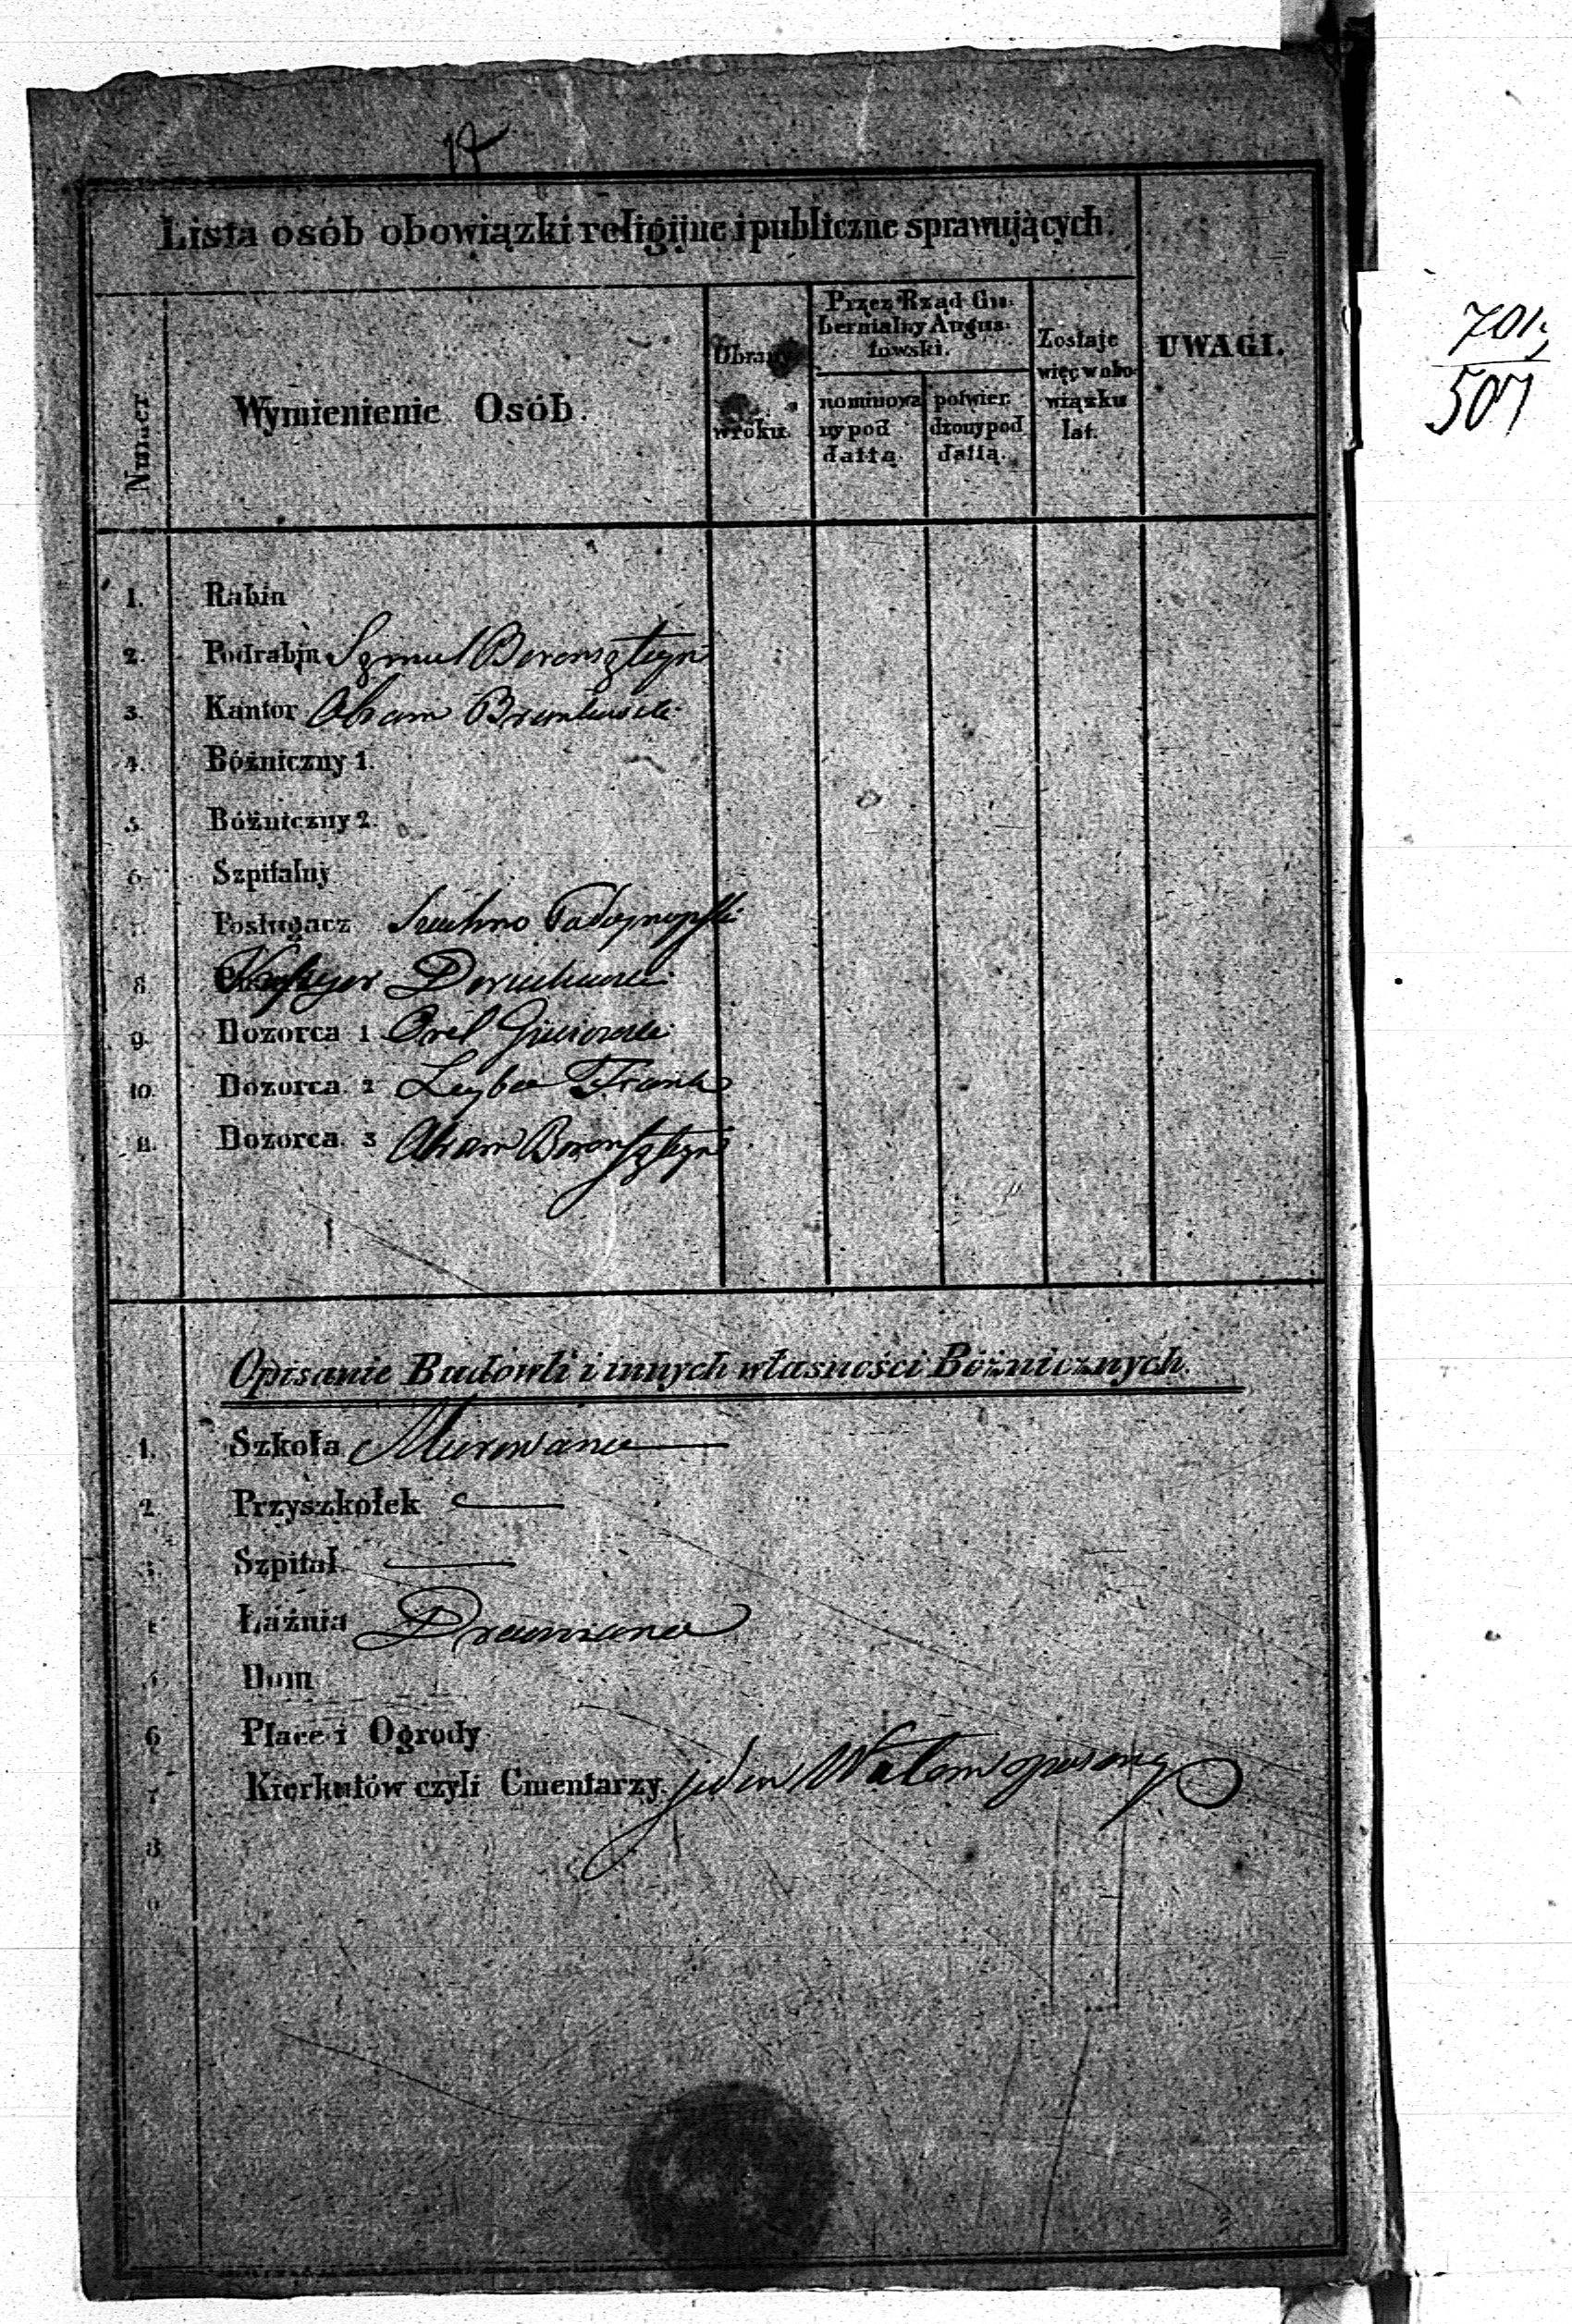 17
Lista osób obowiązki religijne i publiczne sprawujących.
Numer
Wymienienie Osób.
Obrany w roku.
Przez Rząd Gubernialny Augustowski.
nominowany pod dattą.
potwierdzony pod dattą.
Zostaje więc w obowiązku lat.
UWAGI.
701.
507
1. Rabin
2. Podrabin Szmul Boronszteyn
3. Kantor Abram
4. Bóżniczny 1.
5. Bóżniczny 2.
6. Szpitalny
7. Posługacz
8.
9. Dozorca 1
10. Dozorca 2 Leyba Frank
11. Dozorca 3 Abram Boronszteyn
Opisanie Budowli i innych własności Bóżnicznych.
1. Szkoła Murowana
2. Przyszkołek
3. Szpital
4. Łaźnia Drewniana
5. Dom
6 Place i Ogrody
7 Kierkutów czyli Cmentarzy. jeden Wałem opasany
8
9